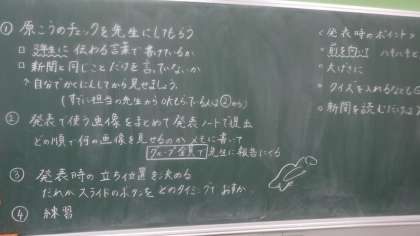 ① 原こうのチェックを先生にしてもらう
□ 5年生に伝わる言葉で書けているか
□ 新聞と同じことだけを言っていないか
↑自分でかくにんしてから見せましょう。
(すでに担当の先生からOKもらている人は②から)
② 発表で使う画像をまとめて発表ノートで提出
どの順で何の画像を見せるのかメモに書いて
グループ全員で先生に報告にくる
③ 発表時の立ち位置を決める
だれがスライドのボタンをどのタイミングでおすか
④ 練習
<発表時のポイント>
・前を向いて ハキハキと
・大げさに
・クイズを入れるなども
・新聞を読むだけは